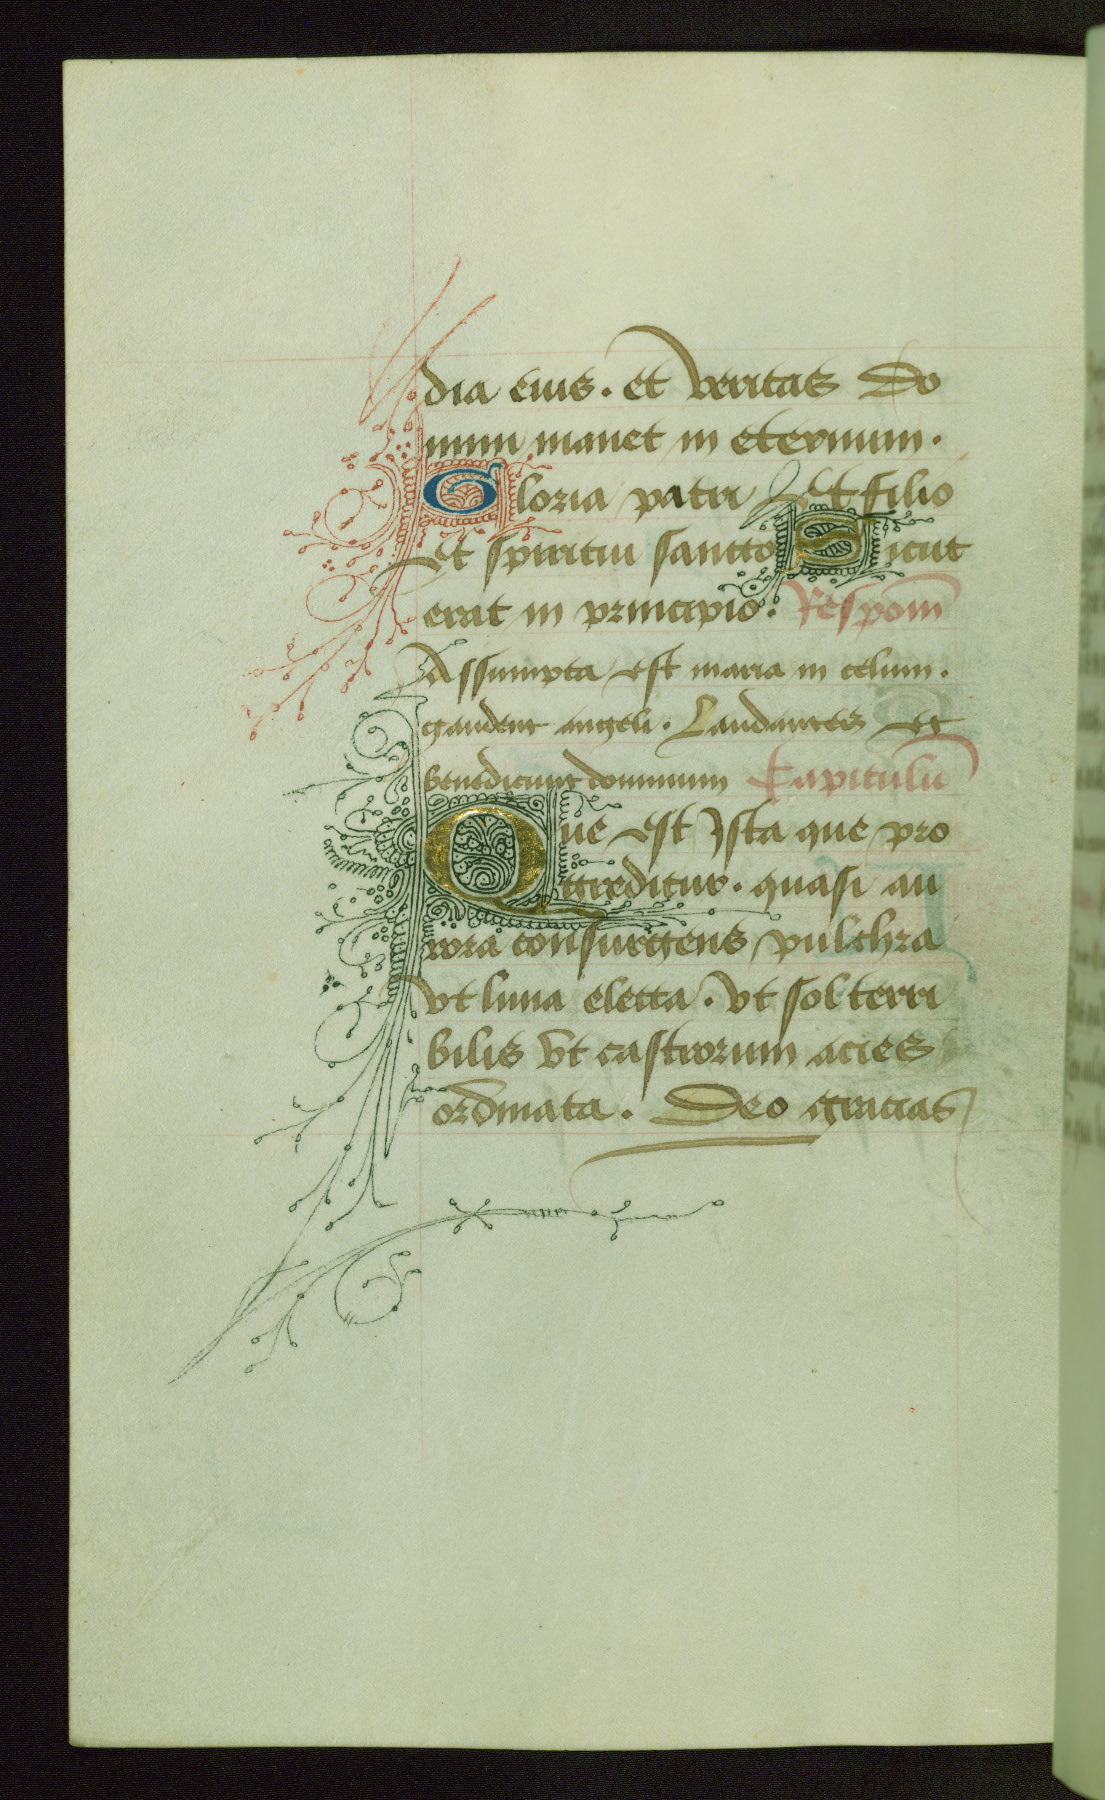 dia eius. et veritas Do
mini manet in eternum.
Gloria patri Et filio
et spiritui sancto Sicut
erat in principio. Respom
Assumpta est maria in celum.
gaudent angeli. Laudantes et
benedicunt dominum Capitulū
Que est Ista que pro
greditur. quasi au
rora consurgens pulchra
vt luna electa. vt sol terri
bilis vt castrorum acies
ordinata. Deo gracias